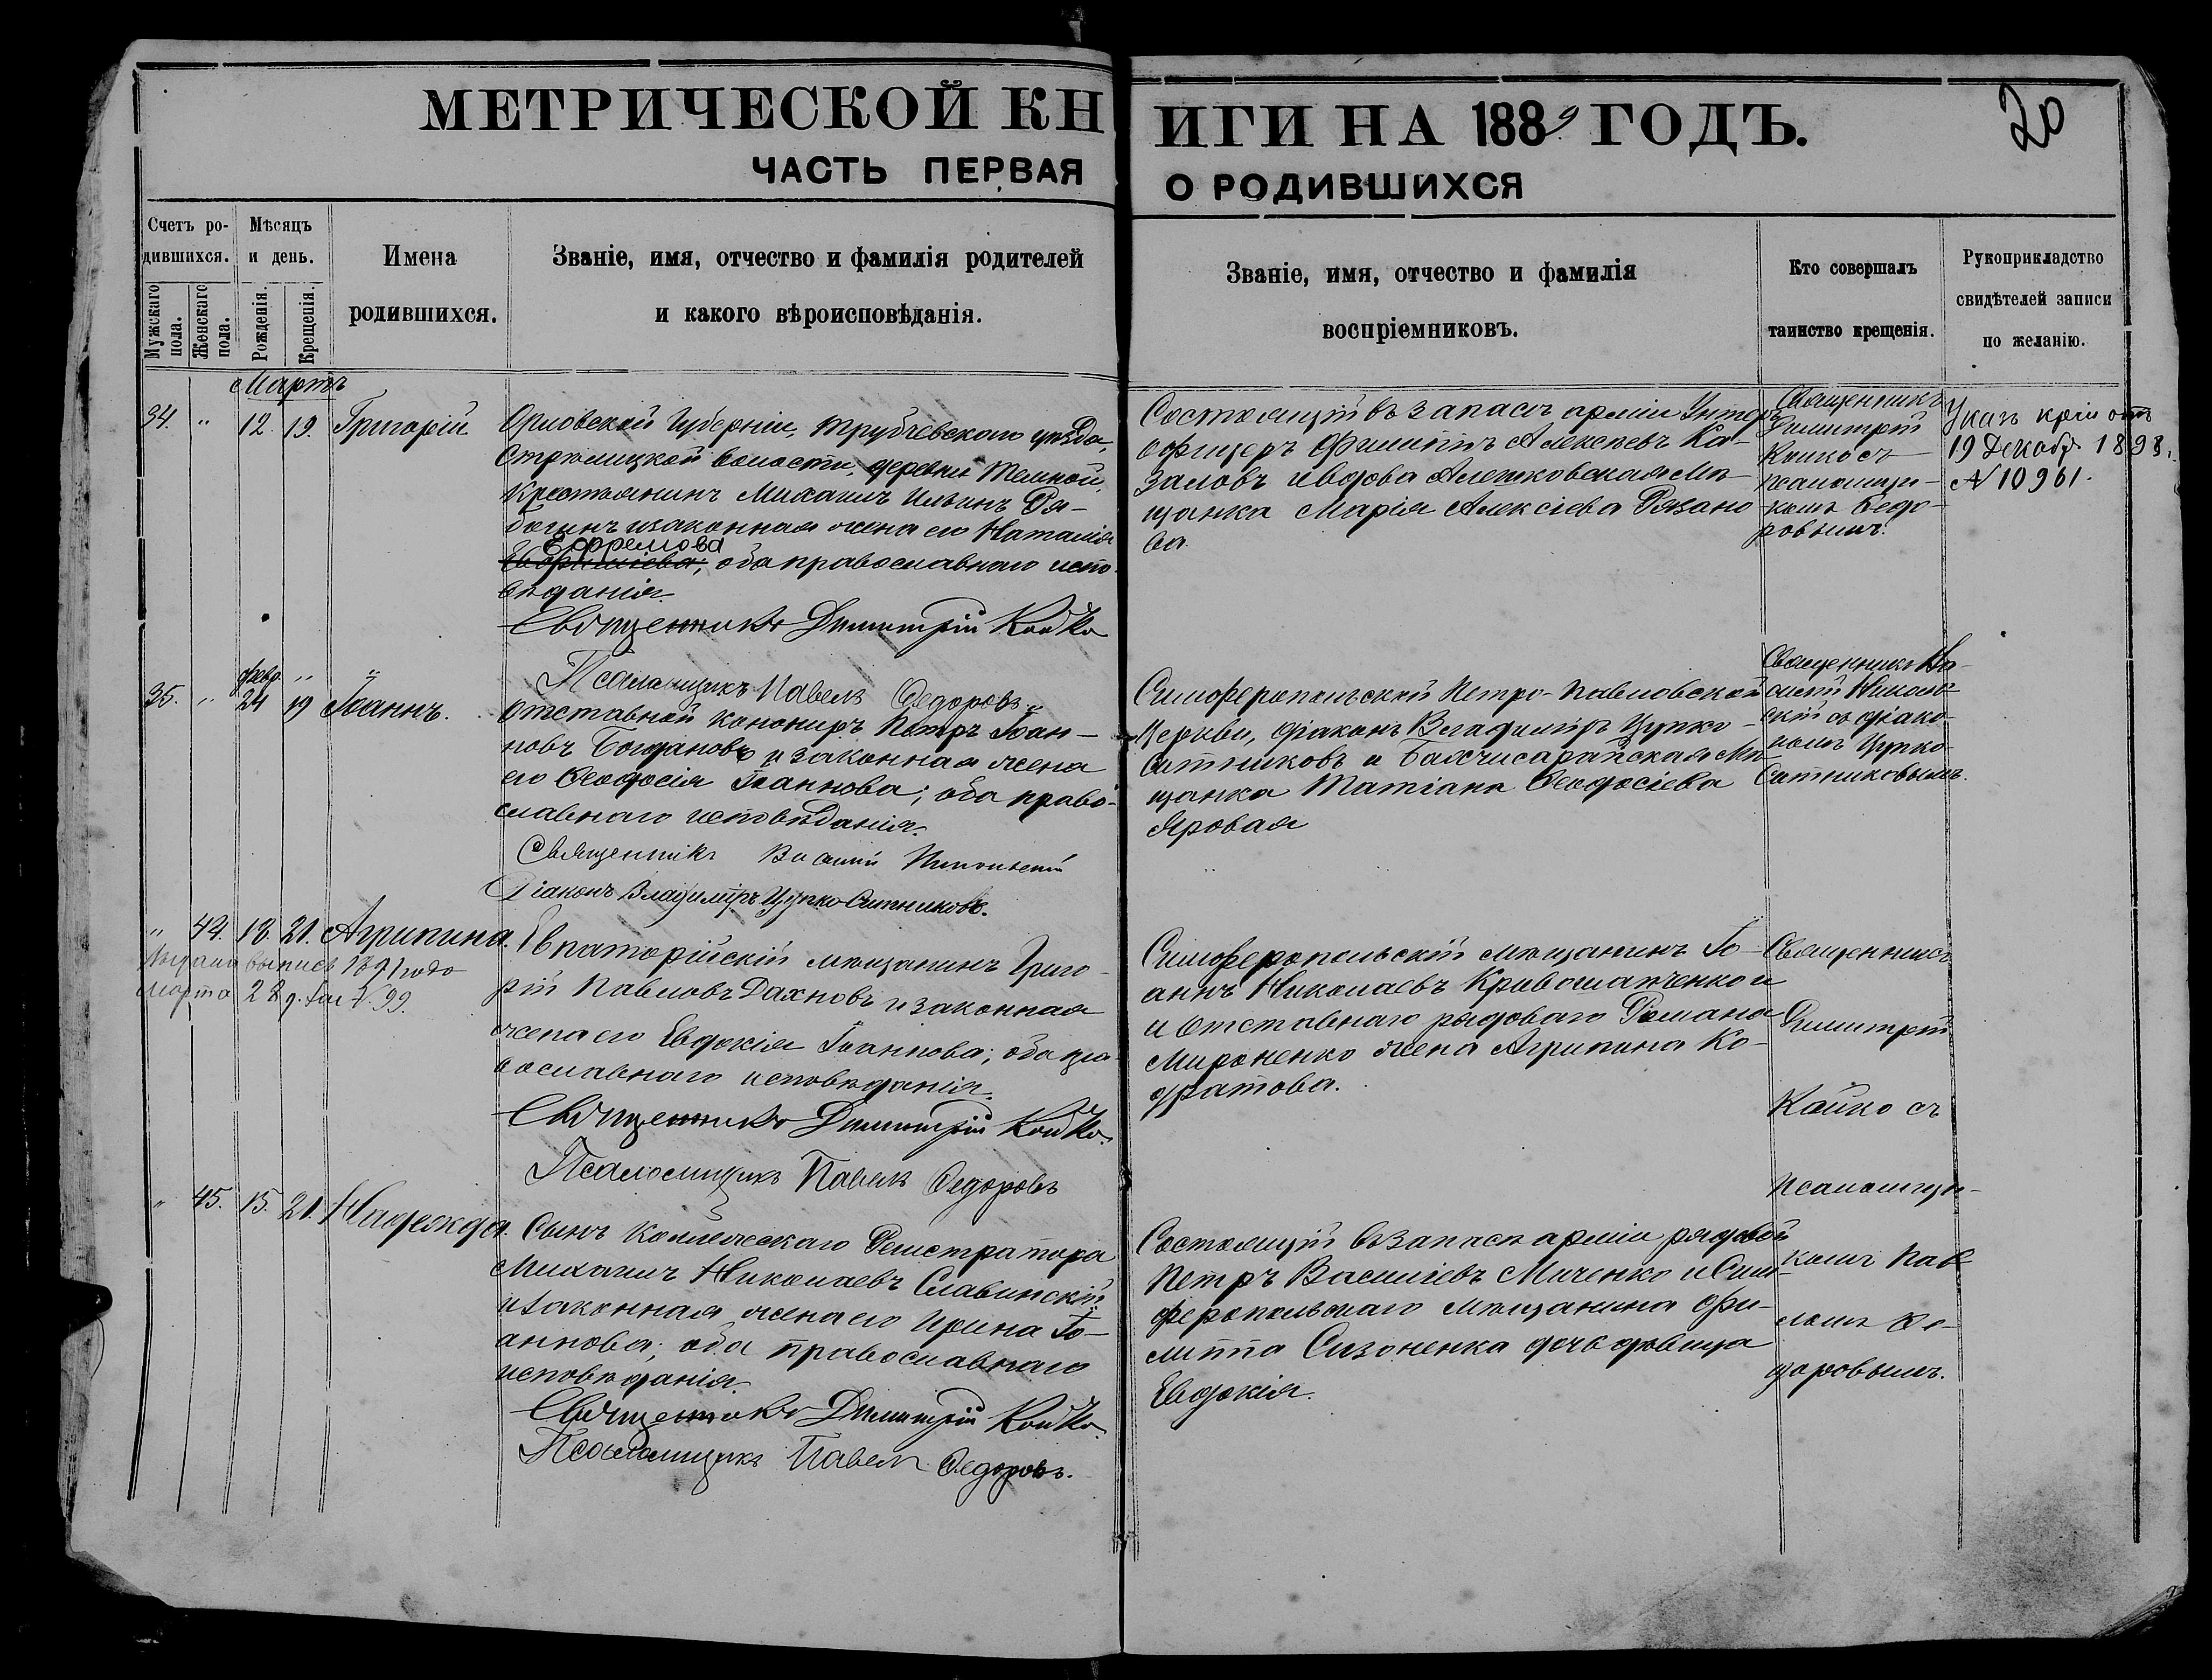 МЕТРИЧЕСКОЙ КНИГИ НА 1889 ГОДЪ.
20
ЧАСТЬ ПЕРВАЯ О РОДИВШИХСЯ
Счетъ ро-
дившихся.
Мужскаго
пола.
Женскаго
пола.
Мѣсяцъ
и день.
Рожденія.
Крещенія.
Имена
родившихся.
Званіе, имя, отчество и фамилія родителей
и какого вѣроисповѣданія.
Званіе, имя, отчество и фамилія
воспріемниковъ.
Кто совершалъ
таинство крещенія.
Рукоприкладство
свидѣтелей записи
по желанію.
Мартъ
34. " 12. 19. Григорій
Орловской Губерніи, Трубчевскаго уѣзда,
Стрѣлицкой волости, деревни Темной,
Крестьянинъ Михаилъ Ильинъ Ря-
богинъ и законная жена его Наталія
Ефремова
оба православнаго испо-
вѣданія.
Священникъ Димитрій Койко
Псаломщикъ Павелъ Федоровъ
Состоящій въ запасѣ арміи Унтеръ
офицеръ Филиппъ Алексѣевъ Ка-
заловъ и вдова Алешковская Мѣ-
щанка Марія Алексіева Рязано
ва.
Священникъ
Димитрій
Койко съ
псаломщи-
комъ Федо-
ровымъ.
Указъ кріи отъ
19 Декабр. 1898.
№ 10961.
февр. " "
35. " 24 19 Іоаннъ.
Отставной канониръ Петръ Іоан-
новъ Богдановъ и законная жена
его Феодосія Іоаннова; оба право-
славнаго исповѣданія.
Священникъ Василій Никольскій
Діаконъ Владиміръ Цупко-Ситниковъ.
Симферопольской Петро-Павловской
Церкви, діаконъ Владиміръ Цупко-
Ситниковъ и Бахчисарайская Мѣ-
щанка Татіана Феодосіева
Яровая
Священникъ Ва-
силій Николь-
скій съ діако-
номъ Цупко-
Ситниковымъ.
" 44. 18. 21. Агрипина.
Выдана выпись 1891 года
Марта 28 д. за № 99.
Евпаторійскій мѣщанинъ Григо-
рій Павловъ Дахновъ и законная
жена его Евдокія Іоаннова; оба пра
вославнаго исповѣданія.
Священникъ Димитрій Койко.
Псаломщикъ Павелъ Федоровъ
Симферопольскій мѣщанинъ Іо-
аннъ Николаевъ Кривошапченко и
и отставнаго рядоваго Романа
Мироненко жена Агрипина Ко-
дратова.
Священникъ
Димитрій
Койко съ
псаломщи-
комъ Пав-
ломъ Фе-
доровымъ.
" 45. 15. 21. Надежда.
Сынъ Коллежскаго Регистратора
Михаилъ Николаевъ Славинскій
и законная жена его Ирина Іо-
аннова; оба православнаго
исповѣданія.
Священникъ Димитрій Койко.
Псаломщикъ Павелъ Федоровъ.
Состоящій въ запасѣ арміи рядовой
Петръ Василіевъ Миченко и Сим-
феропольскаго мѣщанина Фи-
липпа Сизоненка дочь дѣвица
Евдокія.